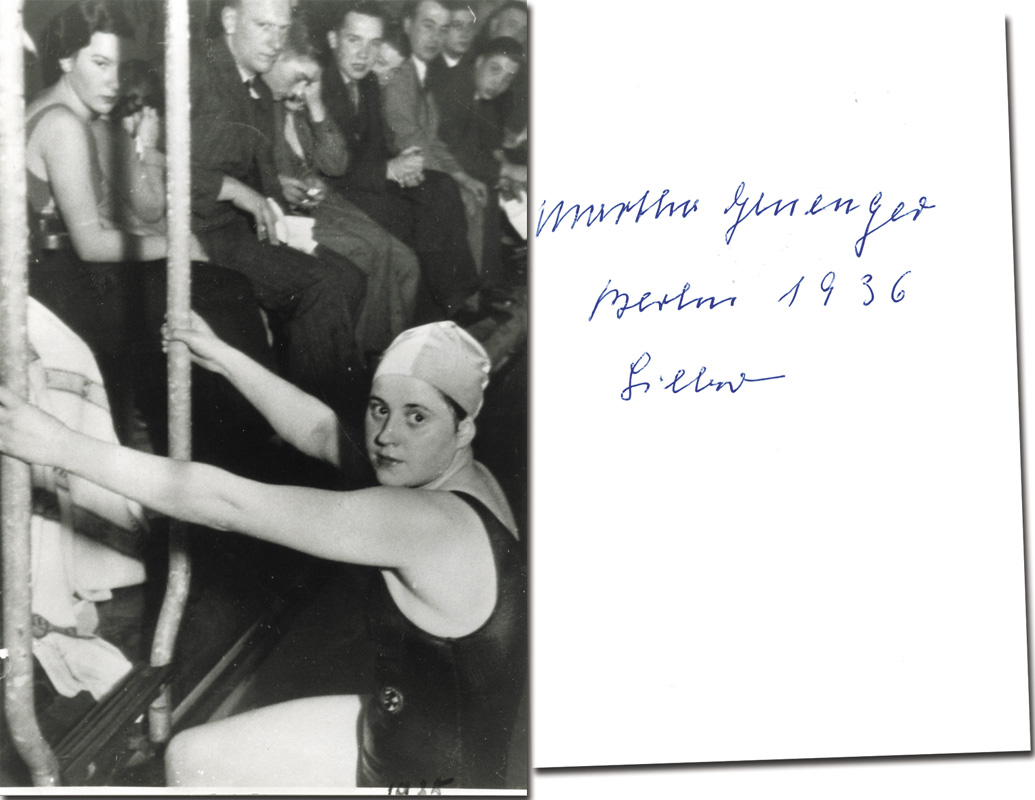 Martha Genenger
Berlin 1936
Silber
1935